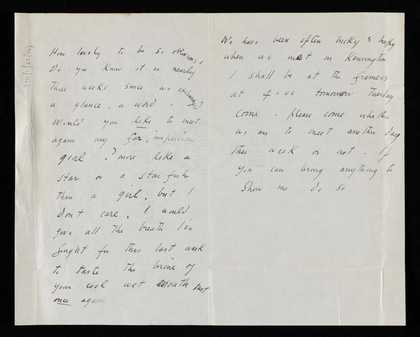 How lovely to be so
Do you know it is nearly
three weeks since we exchanged
a glance, a word -
Would you like to meet
again my far, imperious
girl - ? more like a
star or a star fish
than a girl, but I
don't care, I would
give all the breath I've
fought for this last week
to taste the brine of
your cool wet mouth but
once again
We have been often lucky & happy
when we met in Kensington
I shall be at the
at 4.00 tomorrow Tuesday
Come - please come whether
we are to meet another day
this week or not - if
you can bring anything to
show me do so